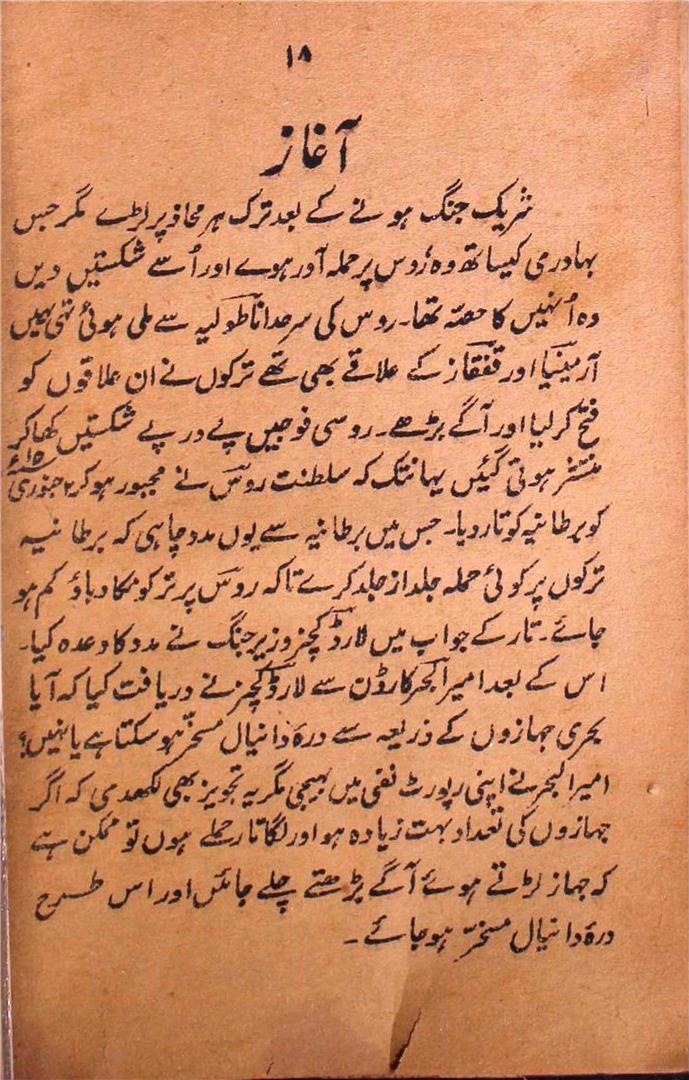 ۱۸
آغاز
شریک جنگ ہونے کے بعد ترک ہر محاذ پر لڑے مگر جس
بہادری کیساتھ وہ رُوس پر حملہ آور ہوے اور اُسے شکستیں دیں
وہ اُنہیں کا حصّہ تھا۔ روس کی سرحد اناطولیہ سے ملی ہوئی تھی یہیں
آرمینیا اور قفقاز کے علاقے بھی تھے ترکوں نے ان علاقوں کو
فتح کرلیا اور آگے بڑھے۔ روسی فوجیں پے در پے شکستیں کھاکر
منتشر ہوتی گئیں یہانتک کہ سلطنت روس نے مجبور ہوکر ۲ جنوری ۱۵ء
کو برطانیہ کو تار دیا۔ جس میں برطانیہ سے یوں مدد چاہی کہ برطانیہ
ترکوں پر کوئی حملہ جلد از جلد کرے تاکہ روس پر ترکونکا دباؤ کم ہو
جائے۔ تار کے جواب میں لارڈ کچنر وزیر جنگ نے مدد کا وعدہ کیا۔
اس کے بعد امیر البحر کارڈن سے لارڈ کچنر نے دریافت کیا کہ آیا
بحری جہازوں کے ذریعہ سے درۂ دانیال مسخّر ہوسکتا ہے یا نہیں؟
امیر البحر نے اپنی رپورٹ نفی میں بھیجی مگر یہ تجویز بھی لکھدی کہ اگر
جہازوں کی تعداد بہت زیادہ ہو اور لگاتار حملے ہوں تو ممکن ہے
کہ جہاز لڑتے ہوئے آگے بڑھتے چلے جائیں اور اس طرح
درۂ دانیال مسخّر ہوجائے۔